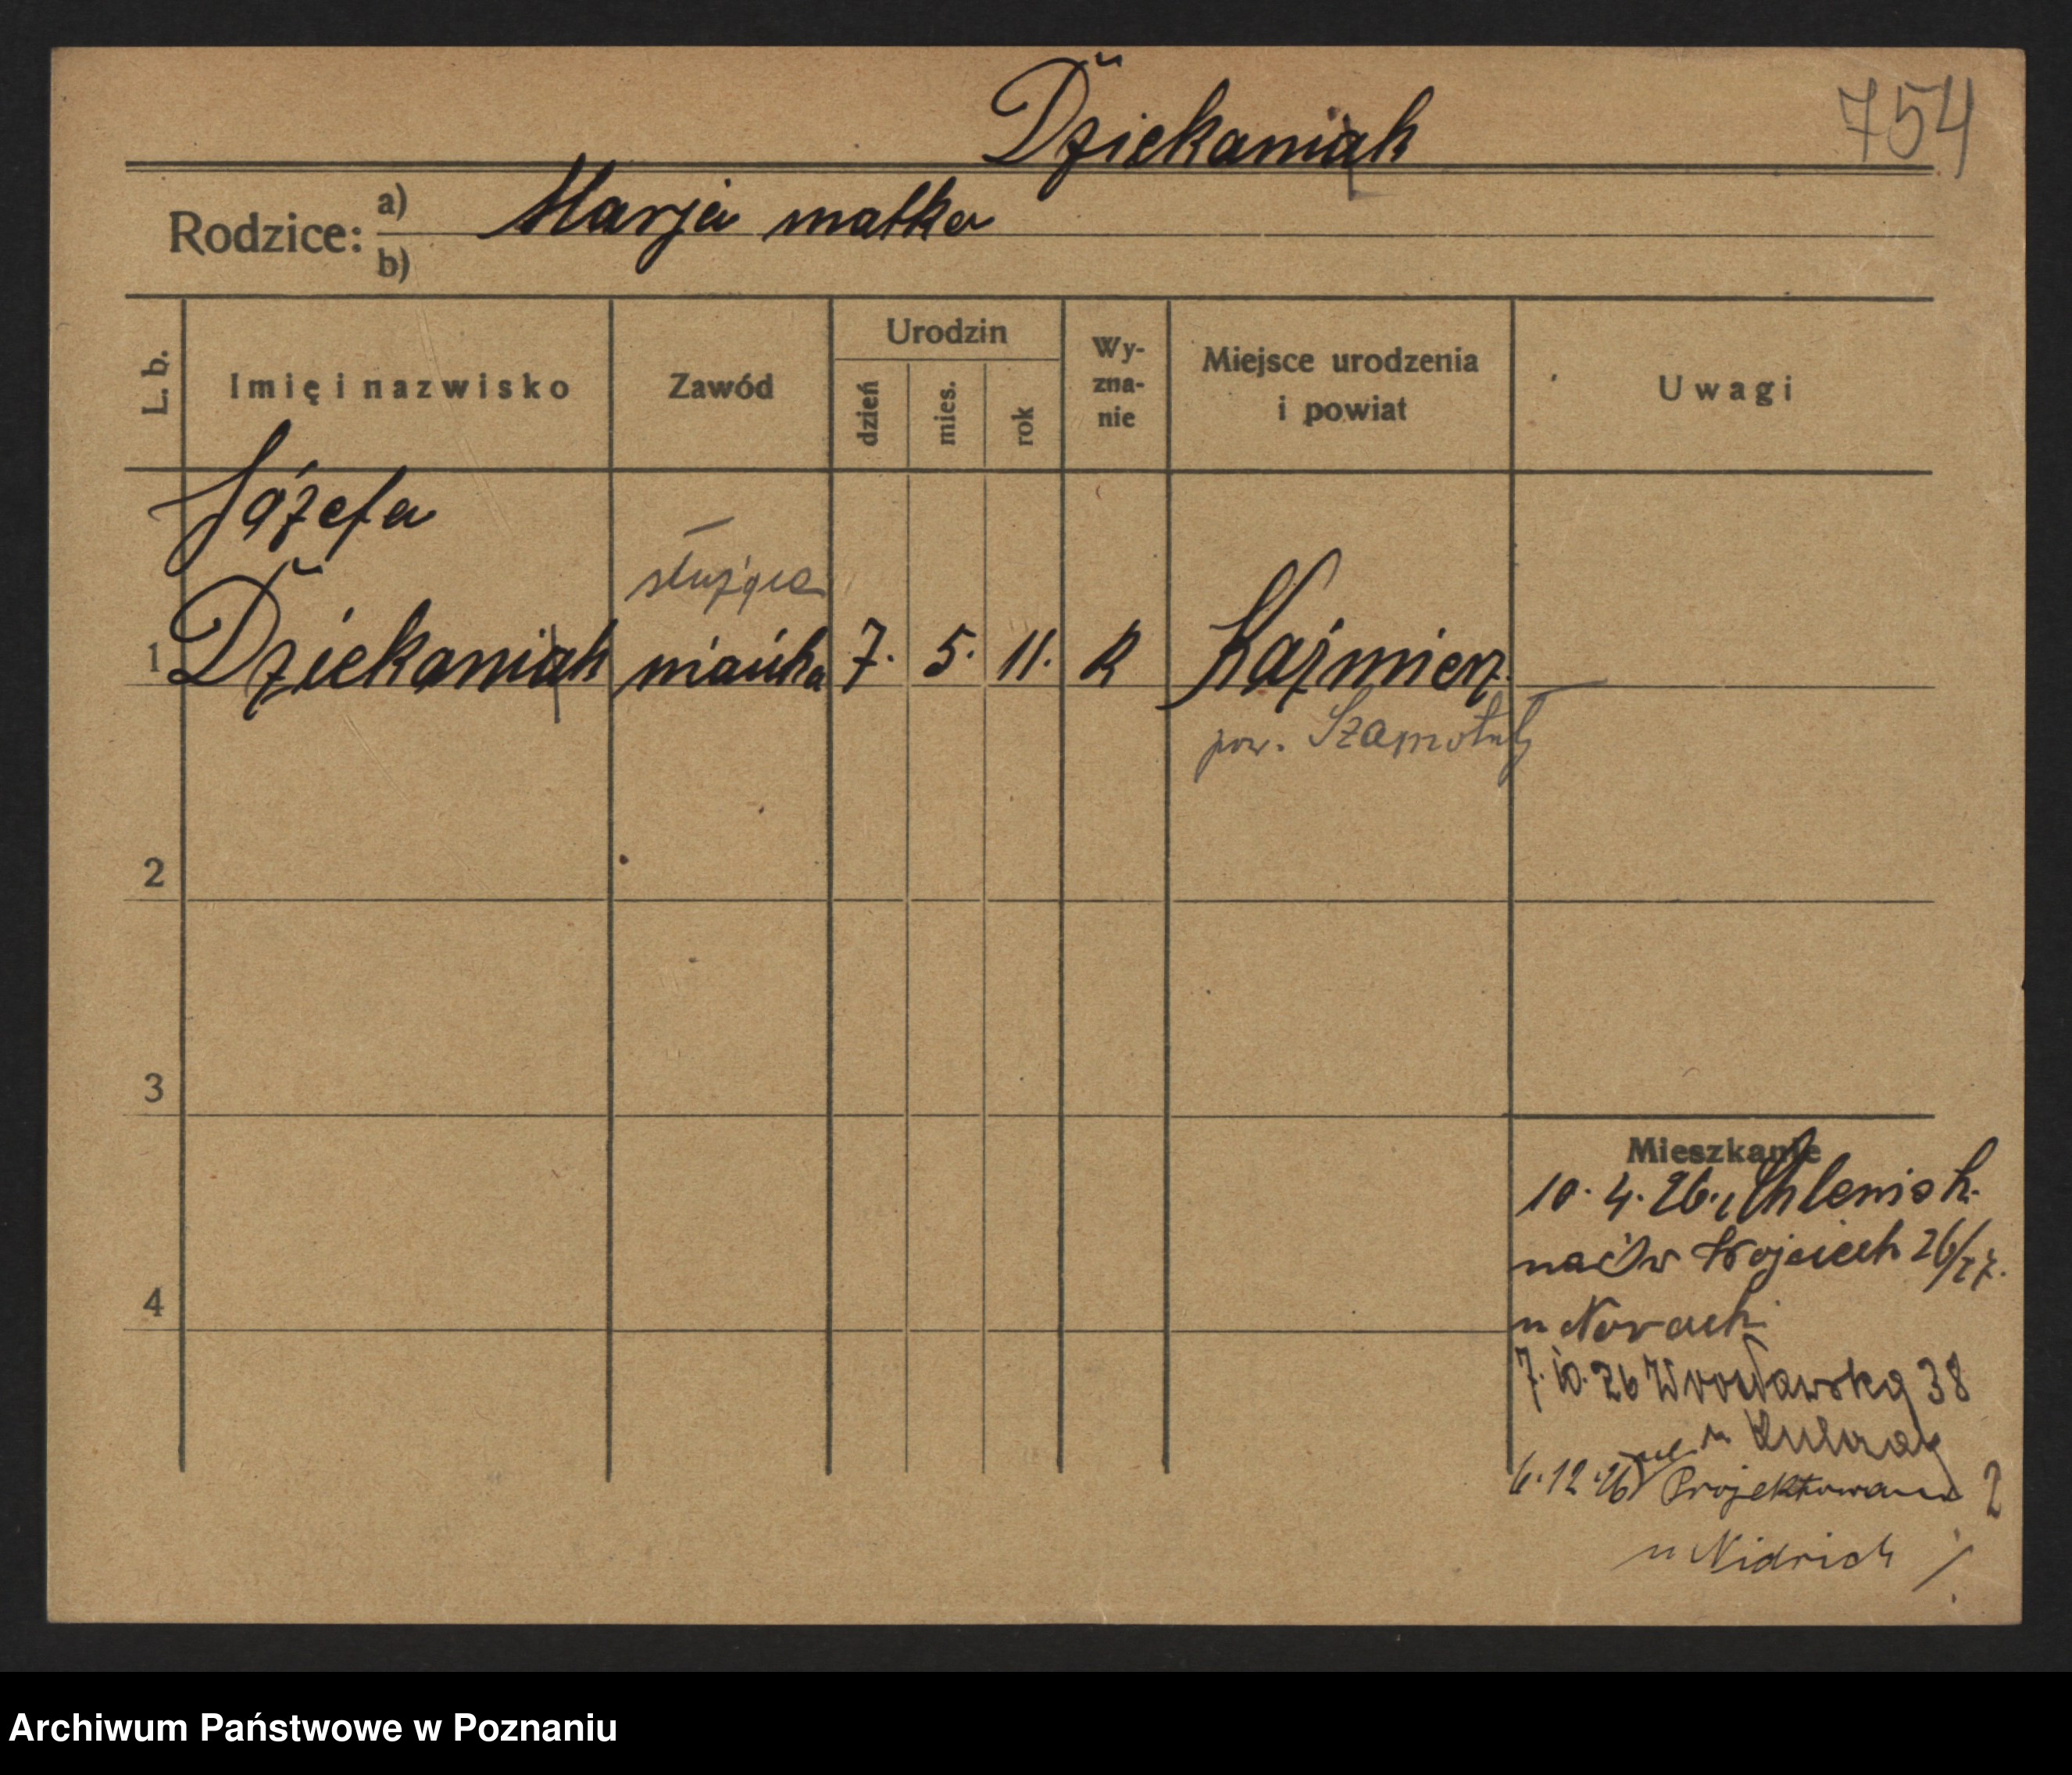 Dziekaniak
754
Rodzice:
a) Marja matka
b)
L. b.
Imię i nazwisko
Zawód
Urodzin
dzień
mies.
rok
Wy-
zna-
nie
Miejsce urodzenia
i powiat
Uwagi
Józefa
służąca
1 Dziekaniak niańka 7. 5. 11. R Kaźmierz
pow. Szamotuły
2
3
4
Mieszkanie
10. 4. 26.
Wojciech 26/27.
u Novach
7. 10. 26 Wrocławska 38
u
6. 12. 26 ul Projektowana 2
u Nidrich
Archiwum Państwowe w Poznaniu